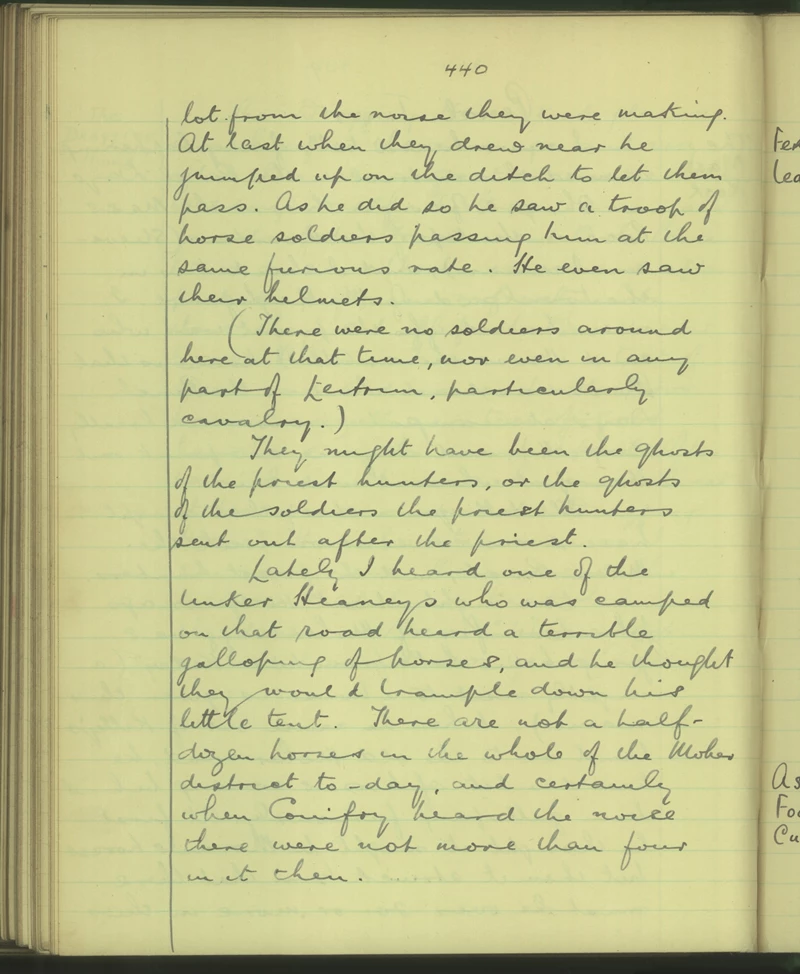 440
lot from the noise they were making.
At last when they drew near he
jumped up on the ditch to let them
pass. As he did so he saw a troop of
horse soldiers passing him at the
same furious rate. He even saw
their helmets.
(There were no soldiers around
here at that time, nor even in any
part of Leitrim, particularly
cavalry.)
They might have been the ghosts
of the priest hunters, or the ghosts
of the soldiers the priest hunters
sent out after the priest.
Lately I heard one of the
tinker Heaneys who was camped
on that road heard a terrible
galloping of horses, and he thought
they would trample down his
little tent. There are not a half-
dozen horses in the whole of the Moher
district to-day, and certainly
when Comfry heard the noise
there were not more than four
in it then. ....
Fe
Lea
As
Foo
Cu